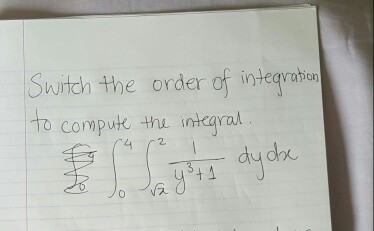 Switch the order of integration
to compute the integral.
∫₀⁴ ∫_{√x}² 1/(y³+1) dy dx